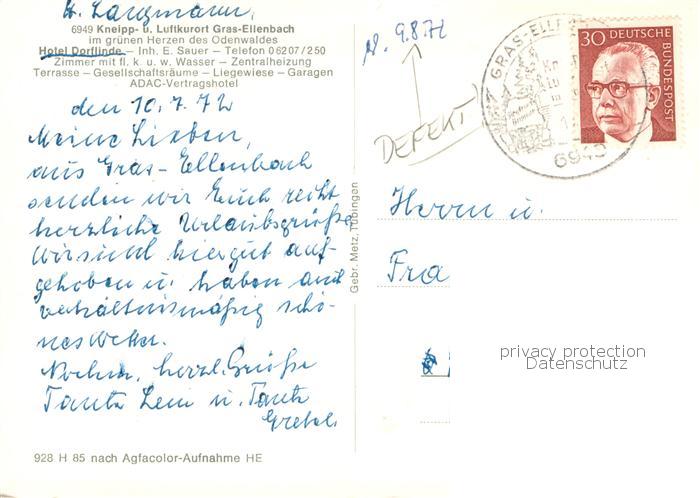 H. Langmann,
6949 Kneipp- u. Luftkurort Gras-Ellenbach
im grünen Herzen des Odenwaldes
Hotel Dorflinde – Inh. E. Sauer – Telefon 06207/250
Zimmer mit fl. k. u. w. Wasser – Zentralheizung
Terrasse – Gesellschaftsräume – Liegewiese – Garagen
ADAC-Vertragshotel
den 10.7.72
Meine Lieben,
aus Gras-Ellenbach
senden wir Euch recht
herzliche Urlaubsgrüße
Wir sind hier gut auf-
gehoben u. haben auch
verhältnismäßig schö-
nes Wetter.
Nochm. herzl. Grüße
Tante Leni u. Tante
Gretel.
928 H 85 nach Agfacolor-Aufnahme HE
Gebr. Metz, Tübingen
9.8.72
DEFEKT!
GRAS-ELLEN
6949
30 DEUTSCHE
BUNDESPOST
Herrn u.
Fra
privacy protection
Datenschutz